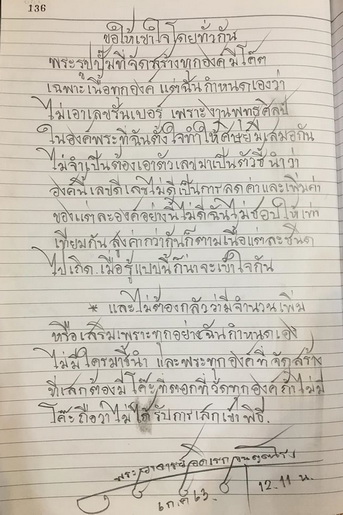 136
ขอให้เข้าใจโดยทั่วกัน
พระรูปปั๊มที่จัดสร้างทุกองค์มีโค๊ต
เฉพาะเนื้อทุกองค์ แต่ฉันกำหนดเองว่า
ไม่เอาเลขรันเบอร์ เพราะงานพุทธศิลป์
ในองค์พระที่ฉันตั้งใจทำให้ศิษย์มีเสมอกัน
ไม่จำเป็นต้องเอาตัวเลขมาเป็นตัวชี้นำว่า
องค์นี้เลขดีเลขไม่ดีเป็นการลดค่าและเพิ่มค่า
ของแต่ละองค์อย่างนี้ไม่ดีฉันไม่ชอบให้เท่า
เทียมกัน สูงค่ากว่ากันก็ตามเนื้อแต่ละชนิด
ไปเถิด เมื่อรู้แบบนี้ก็น่าจะเข้าใจกัน
* และไม่ต้องกลัวว่ามีจำนวนเพิ่ม
หรือเสริมเพราะทุกอย่างฉันกำหนดเอง
ไม่มีใครมาชี้นำ และพระทุกองค์ที่จัดสร้าง
ที่เสกต้องมีโค๊ตที่ตอกที่จัดทุกองค์ถ้าไม่มี
โค๊ตถือว่าไม่ได้รับการเสกเข้าพิธี.
พระอาจารย์
6 ก.ค 63. 12.11 น.